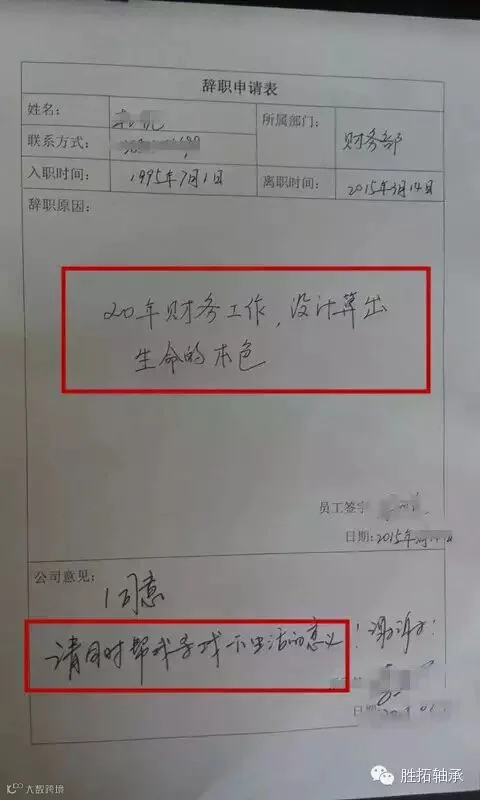 辞职申请表
姓名： 所属部门： 财务部
联系方式：
入职时间： 1995年7月1日 离职时间： 2015年3月14日
辞职原因：
20年财务工作，没计算出
生命的本色
员工签字
日期：2015年
公司意见：
同意
请同时帮我寻找下生活的意义！谢谢！
日期：
大数跨境
胜拓轴承